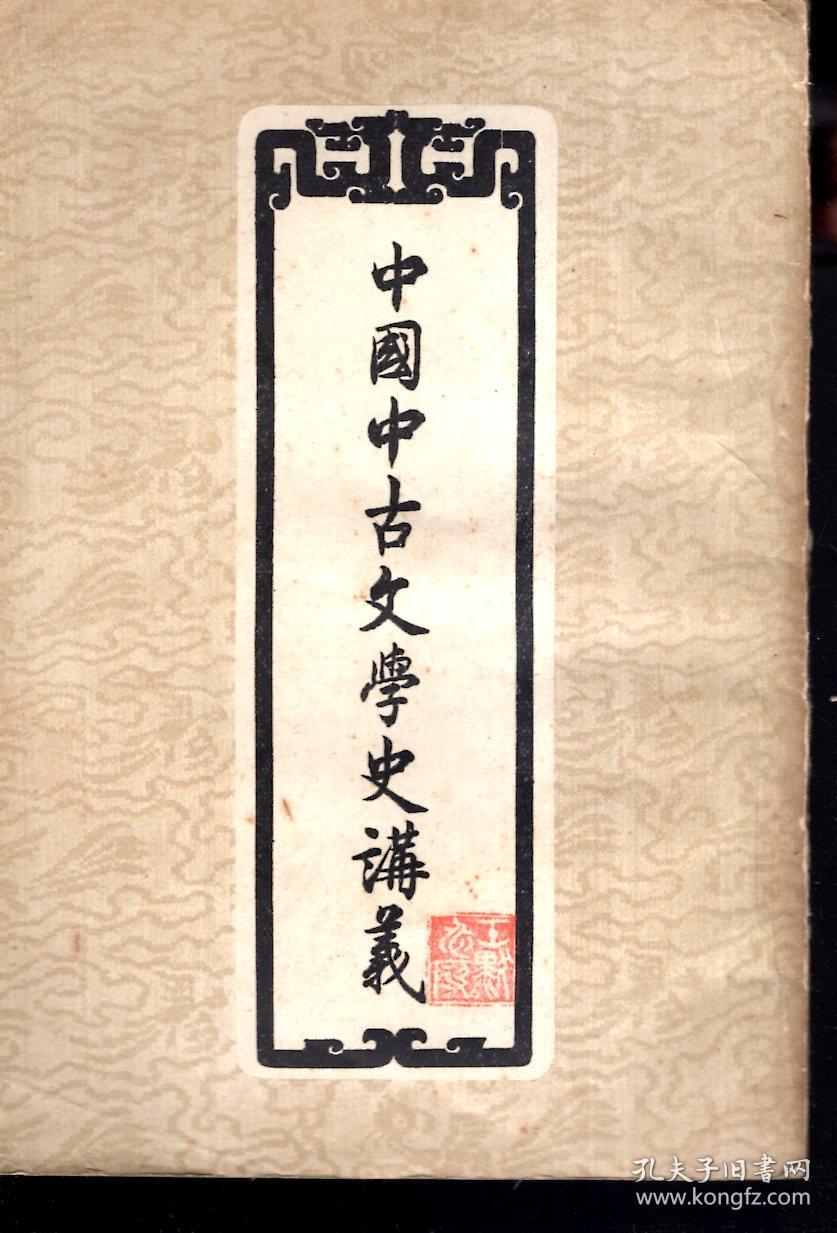 中國中古文學史講義
孔夫子旧書网
www.kongfz.com